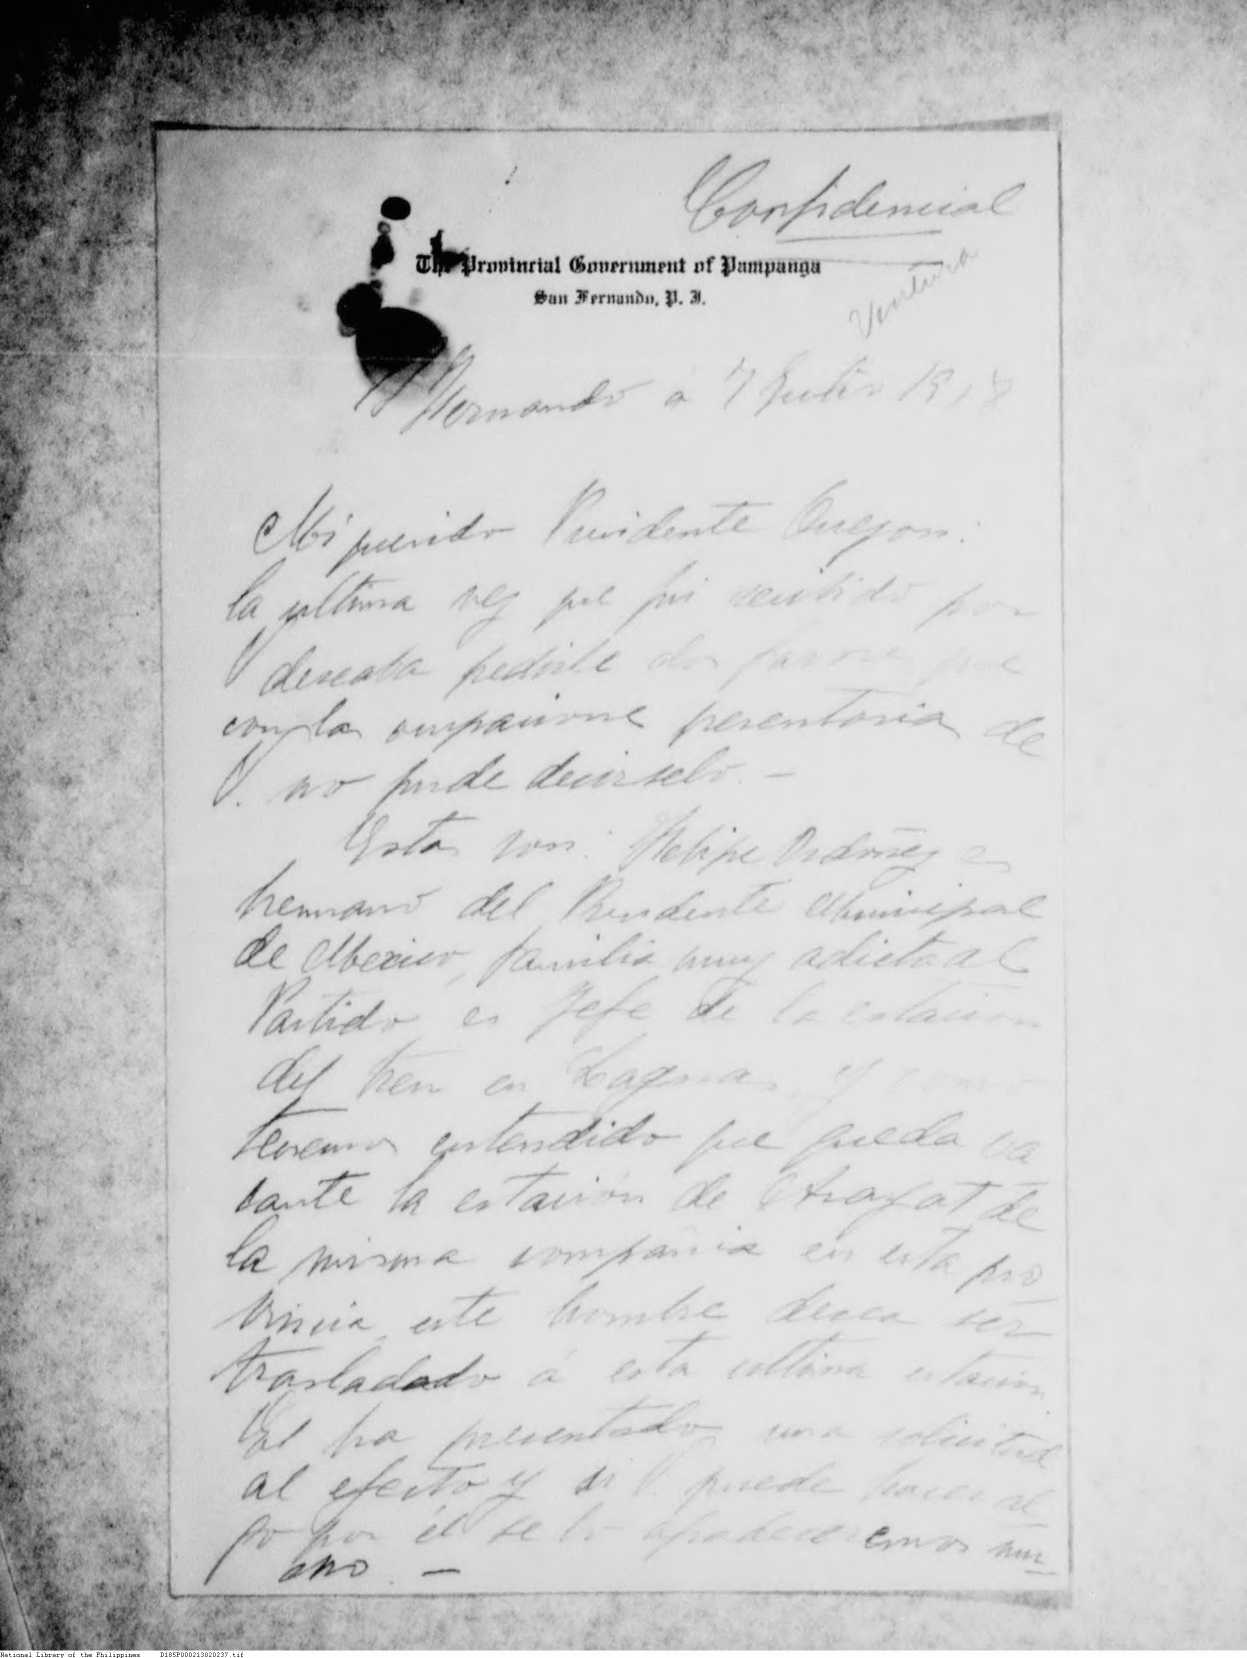 Confidencial
The Provincial Government of Pampanga
San Fernando, P. I.
Ventura
S Fernando á 7 Julio 1918
Mi querido Presidente Quezon:
la ultima vez que fui recibido por
V. deseaba pedirle dos favores que
con las ocupaciones perentorias de
V. no pude decirselo. —
Estos son: Felipe Ordoñez es
hermano del Presidente Municipal
de Mexico, familia muy adicta al
Partido es Jefe de la estacion
del tren en Laguna, y como
tenemos entendido que queda va
cante la estación de Arayat de
la misma compañia en esta pro
vincia, este hombre desea ser
trasladado á esta ultima estacion
El ha presentado una solicitud
al efecto y si V. puede hacer al
go por él se lo agradeceremos mu
cho. —
National Library of the Philippines D185P000213020237.tif